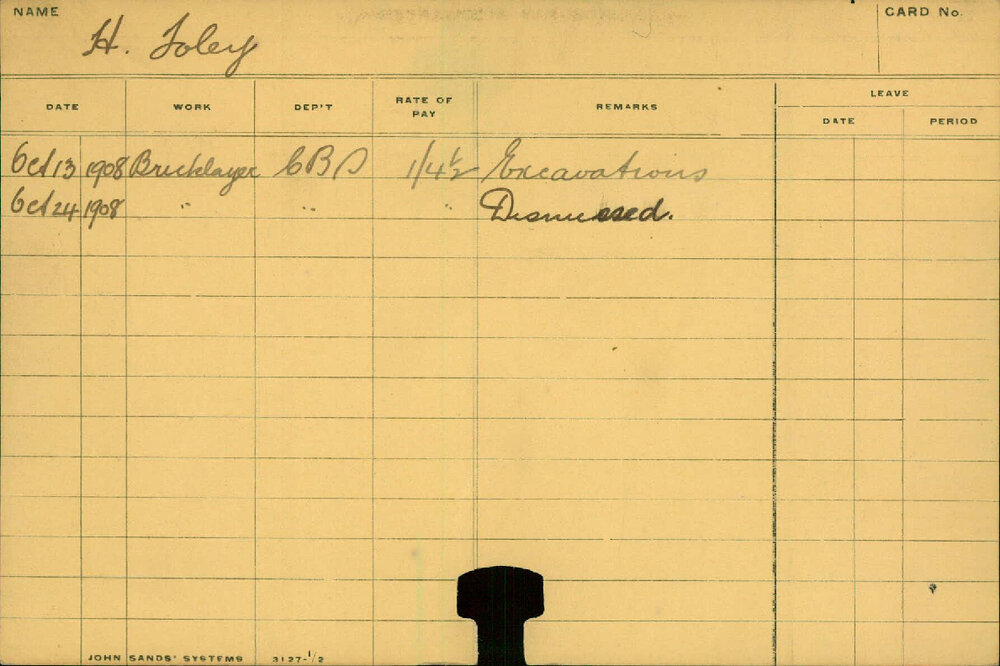 NAME H. Foley CARD No.
DATE WORK DEP'T RATE OF PAY REMARKS LEAVE
DATE PERIOD
Oct 13 1908 Bricklayer CBD 1/4½ Excavations
Oct 24 1908 " " " Dismissed.
JOHN SANDS' SYSTEMS 3127-1/2